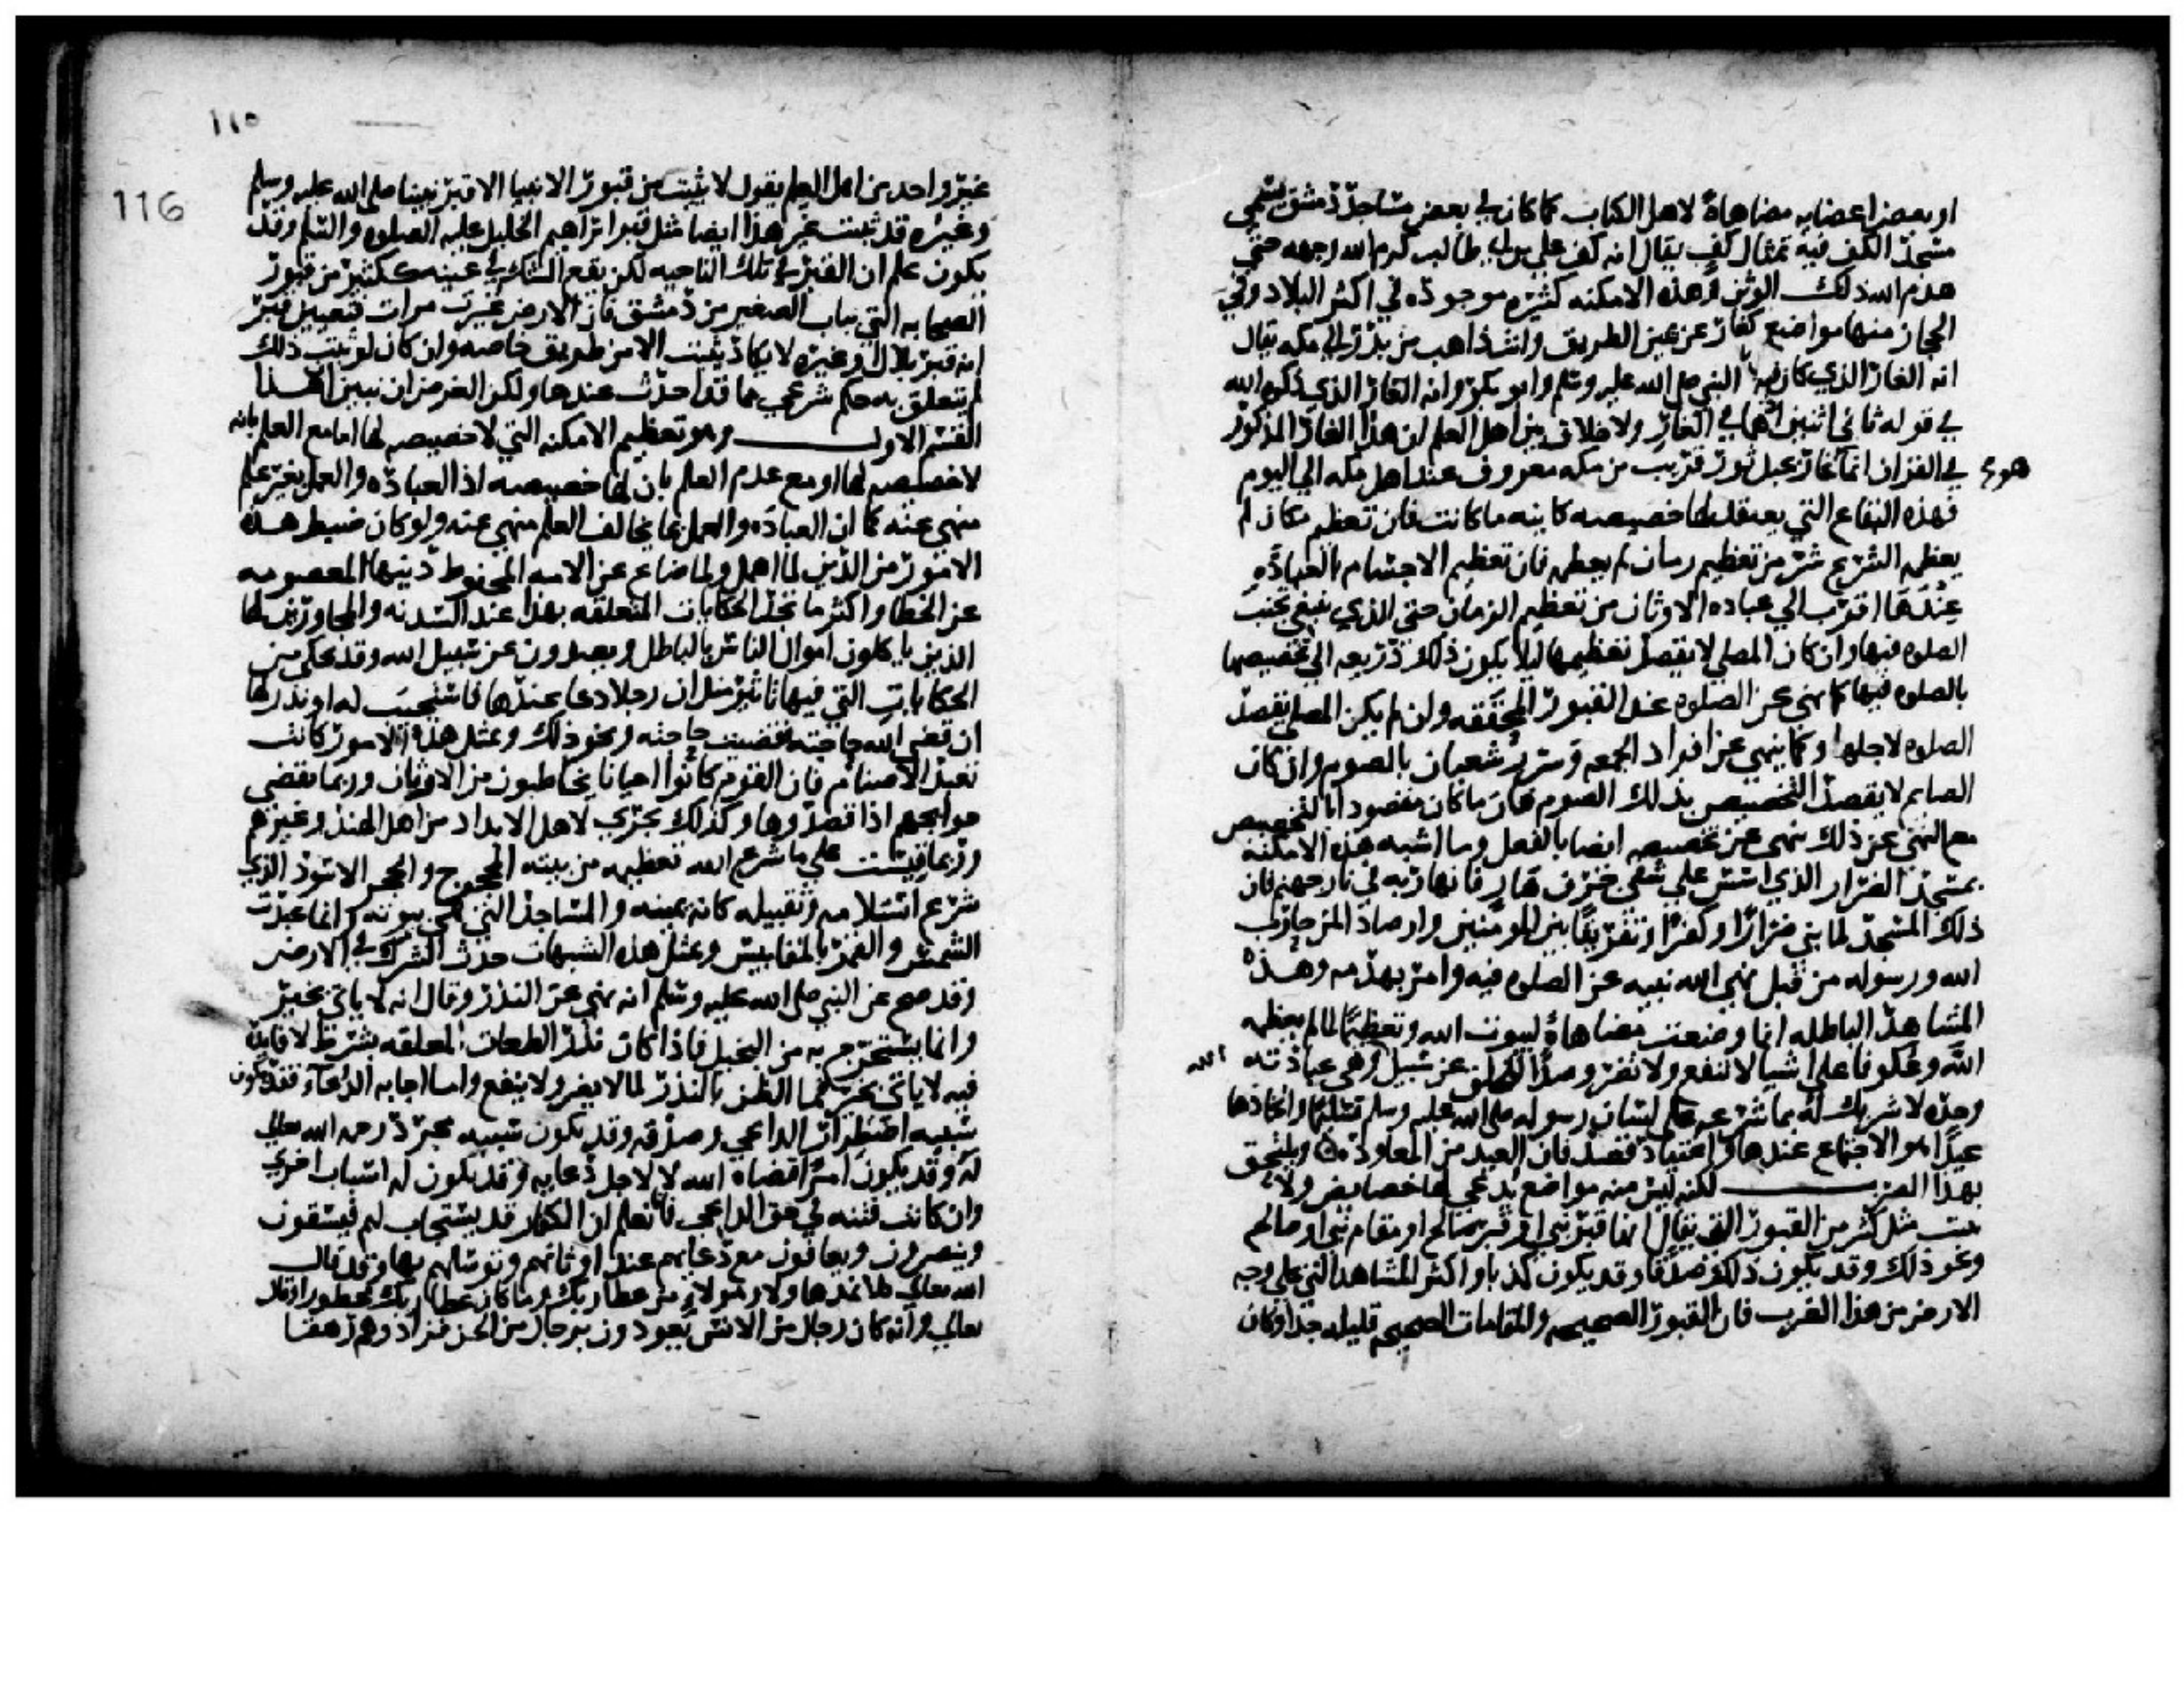 او بعض اعضايه مضاهاة لاهل الكتاب كما كان في بعض مساجد دمشق يسمى
مسجد الكف فيه تمثال كف يقال انه كف علي بن ابي طالب كرم الله وجهه حتى
هدم الله ذلك الوثن وهذه الامكنه كثيره موجوده في اكثر البلاد وفي
الحجاز منها مواضع كغار عن عين الطريق وانت ذاهب من بدر الى مكه يقال
انه الغار الذي كان فيه النبي صلى الله عليه وسلم وابو بكر وانه الغار الذي ذكره الله
في قوله ثاني اثنين اذ هما في الغار ولا خلاف بين اهل العلم ان هذا الغار المذكور
هوع في القران انما غار بجبل ثور قريب من مكه معروف عند اهل مكه الى اليوم
فهذه البقاع التي يعتقد لها خصيصه كاينه ما كانت فان تعظيم مكان لم
يعظمه الشرع شر من تعظيم زمان لم يعظمه فان تعظيم الاجسام بالعباده
عندها اقرب الي عباده الاوثان من تعظيم الزمان حتى الذي ينبغي تجنب
الصلوه فيها وان كان المصلي لا يقصد تعظيمها ليلا يكون ذلك ذريعه الى تخصيصها
بالصلوه فيها كما نهى عن الصلوه عند القبور المحققه وان لم يكن المصلي يقصد
الصلوه لاجلها وكما ينهى عن افراد الجمعه وسرر شعبان بالصوم وان كان
الصايم لا يقصد التخصيص بذلك الصوم فان ما كان مقصودا بالتخصيص
مع النهي عن ذلك نهي عن تخصيصه ايضا بالفعل وما اشبه هذه الامكنه
بمسجد الضرار الذي اسس على شفى جرف هار فانهار به في نار جهنم فان
ذلك المسجد لما بني ضرارا وكفرا وتفريقا بين المومنين وارصادا لمن حارب
الله ورسوله من قبل نهى الله نبيه عن الصلوه فيه وامر بهدمه وهذه
المشاهد الباطله انما وضعت مضاهاة لبيوت الله وتعظيما لما لم يعظمه
الله وعكوفا على اشيا لا تنفع ولا تضر وصدا للخلق عن سبيل الله وهي عبادته
وحده لا شريك له بما شرعه على لسان رسوله صلى الله عليه وسلم تسليما واتخاذها
عيدا هو الاجتماع عندها واعتياد قصدها فان العيد من المعاوده ويلتحق
بهذا الضرب لكنه ليس منه مواضع تدعى لها خصايص ولا
تثبت مثل كثير من القبور التي يقال انها قبر نبي او قبر صالح او مقام نبي او صالح
ونحو ذلك وقد يكون ذلك صدقا وقد يكون كذبا واكثر المشاهد التي على وجه
الارض من هذا الضرب فان القبور الصحيحه والمقامات الصحيحه قليله جدا وكان
١١٥
116
غير واحد من اهل العلم يقول لا يثبت من قبور الانبيا الا قبر نبينا صلى الله عليه وسلم
وغيره قد يثبت غير هذا ايضا مثل قبر ابراهيم الخليل عليه الصلوه والسلم وقد
يكون علم ان القبر في تلك الناحيه لكن يقع الشك في عينه ككثير من قبور
الصحابه التي بباب الصغير من دمشق فان الارض غيرت مرات فتعيين قبر
انه قبر بلال وغيره لا يكاد يثبت الا من طريق خاصه وان كان لو ثبت ذلك
لم يتعلق به حكم شرعي مما قد احدث عندها ولكن الغرض ان نبين ان هذا
القسم الاول وهو تعظيم الامكنه التي لا خصيصه لها اما مع العلم بانه
لا خصيصه لها او مع عدم العلم بان لها خصيصه اذ العباده والعمل بغير علم
منهي عنه كما ان العباده والعمل بما يخالف العلم منهي عنه ولو كان ضبط هذه
الامور من الدين لما اهمل ولما ضاع عن الامه المحفوظ دينها المعصومه
عن الخطا واكثر ما تجد الحكايات المتعلقه بهذا عند السدنه والمجاورين لها
الذين ياكلون اموال الناس بالباطل ويصدون عن سبيل الله وقد يحكى من
الحكايات التي فيها تاثير مثل ان رجلا دعا عندها فاستجيب له او نذر لها
ان قضى الله حاجته فقضيت حاجته ونحو ذلك وبمثل هذه الامور كانت
تعبد الاصنام فان القوم كانوا احيانا يخاطبون من الاوثان وربما تقضى
حوايجهم اذا قصدوها وكذلك يجري لاهل الابداد من اهل الهند وغيرهم
وربما قيست على ما شرع الله تعظيمه من بيته المحجوج والحجر الاسود الذي
شرع استلامه وتقبيله كانه يمينه والمساجد التي هي بيوته وانما عبدت
الشمس والقمر بالمقاييس وبمثل هذه الشبهات حدث الشرك في الارض
وقد صح عن النبي صلى الله عليه وسلم انه نهى عن النذر وقال انه لا ياتي بخير
وانما يستخرج به من البخيل فاذا كان نذر الطعات المعلقه بشرط لا فايده
فيه لا ياتي بخير فما الظن بالنذر لما لا يضر ولا ينفع واما اجابه الدعا فقد يكون
سببه اضطرار الداعي وصدقه وقد يكون سببه مجرد رحمه الله تعالى
له وقد يكون امرا قضاه الله لا لاجل دعايه وقد يكون له اسباب اخرى
وان كانت فتنه في حق الداعي فانا نعلم ان الكفار قد يستجاب لهم فيسقون
وينصرون ويعافون مع دعايهم عند اوثانهم وتوسلهم بها وقد قال
الله تعالى كلا نمد هاولا وهاولا من عطا ربك وما كان عطا ربك محظورا وقال
تعالى وانه كان رجال من الانس يعوذون برجال من الجن فزادوهم رهقا